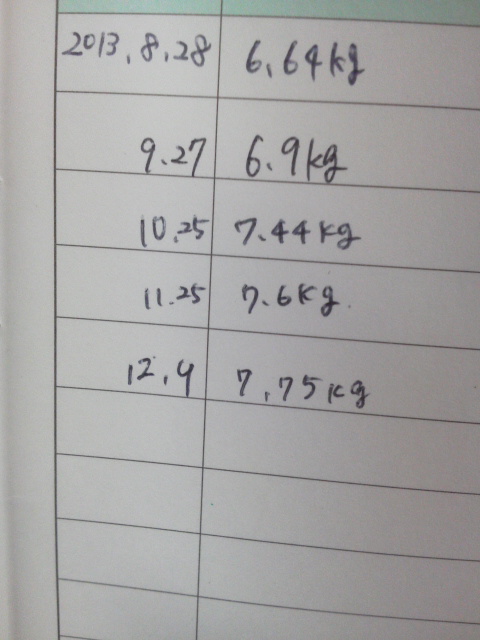 2013.8.28 6.64kg
9.27 6.9kg
10.25 7.44kg
11.25 7.6kg
12.9 7.75kg